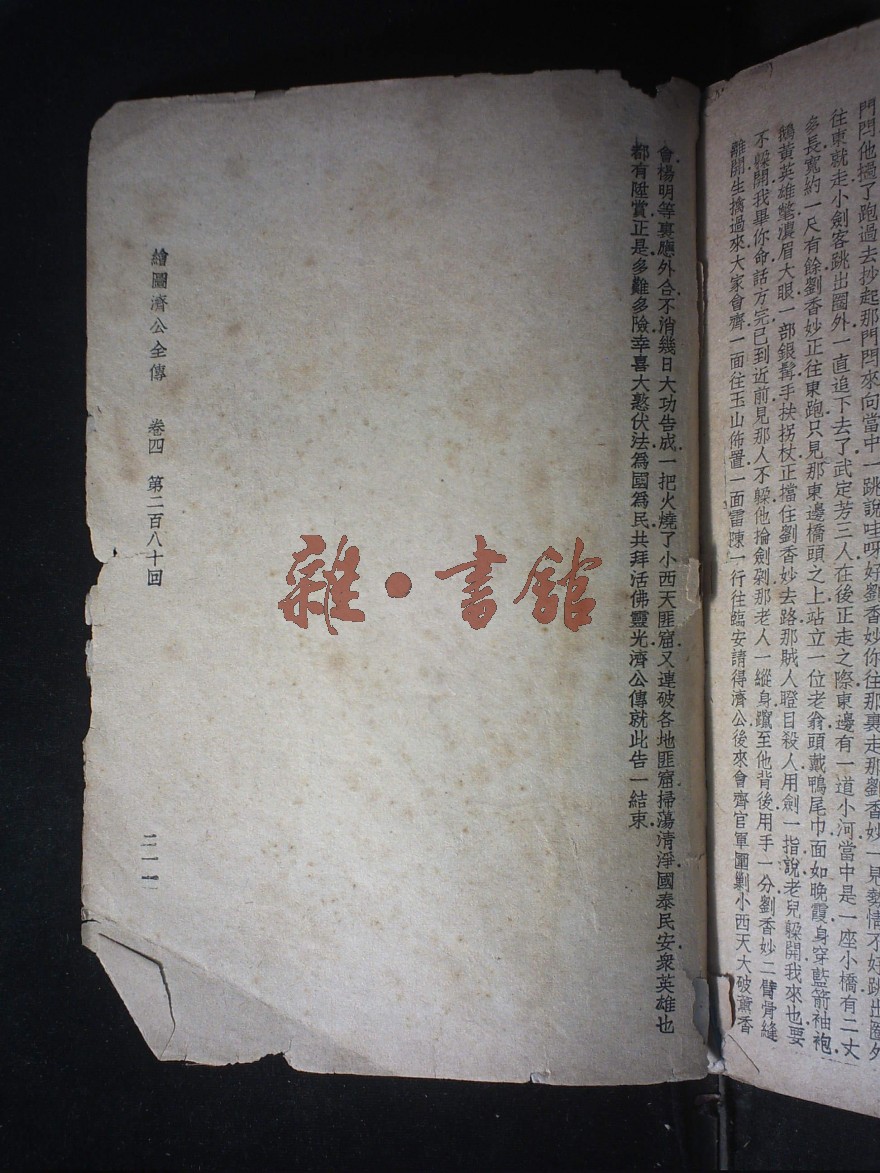 門閂他擋了跑過去抄起那門閂來向當中一跳說哇呀好劉香妙你往那裏走那劉香妙一見勢情不好跳出圈外
往東就走小劍客跳出圈外一直追下去了武定芳三人在後正走之際東邊有一道小河當中是一座小橋有二丈
多長寬約一尺有餘劉香妙正往東跑只見那東邊橋頭之上站立一位老翁頭戴鴨尾巾面如晚霞身穿藍箭袖袍
鵝黃英雄氅濃眉大眼一部銀髯手扶拐杖正擋住劉香妙去路那賊人瞪目殺人用劍一指說老兒躲開我來也要
不躲開我畢你命話方完已到近前見那人不躲他掄劍剁那老人一縱身躥至他背後用手一分劉香妙二臂骨縫
離開生擒過來大家會齊一面往玉山佈置一面雷陳一行往臨安請得濟公後來會齊官軍圍剿小西天大破薰香
會楊明等裏應外合不消幾日大功告成一把火燒了小西天匪窟又連破各地匪窟掃蕩清淨國泰民安衆英雄也
都有陞賞正是多難多險幸喜大憝伏法爲國爲民共拜活佛靈光濟公傳就此告一結束
繪圖濟公全傳 卷四 第二百八十回
二一一
雜·書館